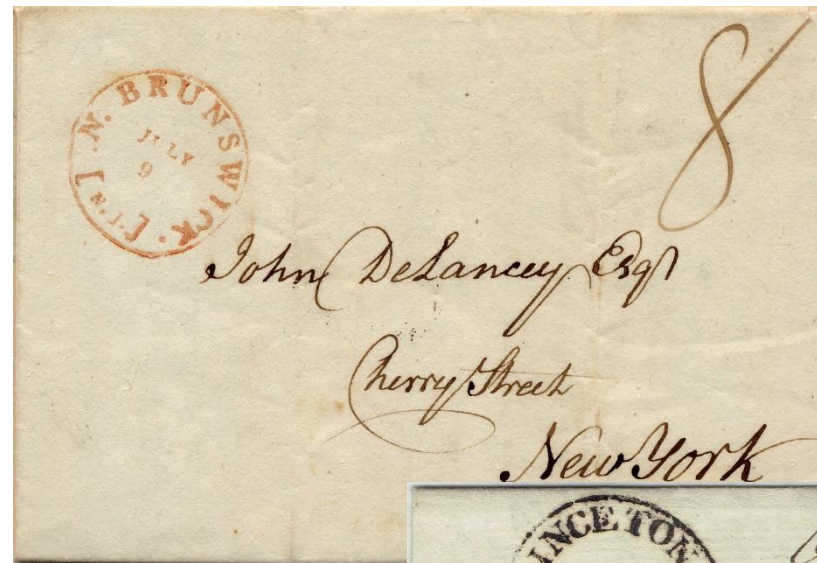 N. BRUNSWICK. [N.J.]
JULY
9
8
John DeLancey Esqr
Cherry Street
New York
INCETON